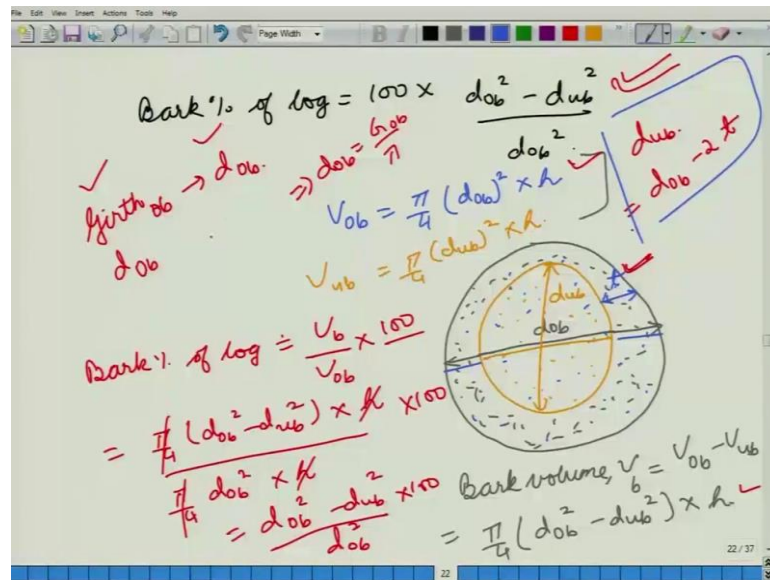 File Edit View Insert Actions Tools Help
Page Width
Bark % of log = 100 × (d_ob² - d_ub²) / d_ob²
Girth_ob → d_ob. ⇒ d_ob = G_ob / π
d_ob
V_ob = π/4 (d_ob)² × h
V_ub = π/4 (d_ub)² × h.
d_ub.
= d_ob - 2t
t
d_ub
d_ob
Bark % of log = V_b / V_ob × 100
= π/4 (d_ob² - d_ub²) × h / π/4 d_ob² × h × 100
= d_ob² - d_ub² / d_ob² × 100
Bark volume, V_b = V_ob - V_ub
= π/4 (d_ob² - d_ub²) × h
22 / 37
22